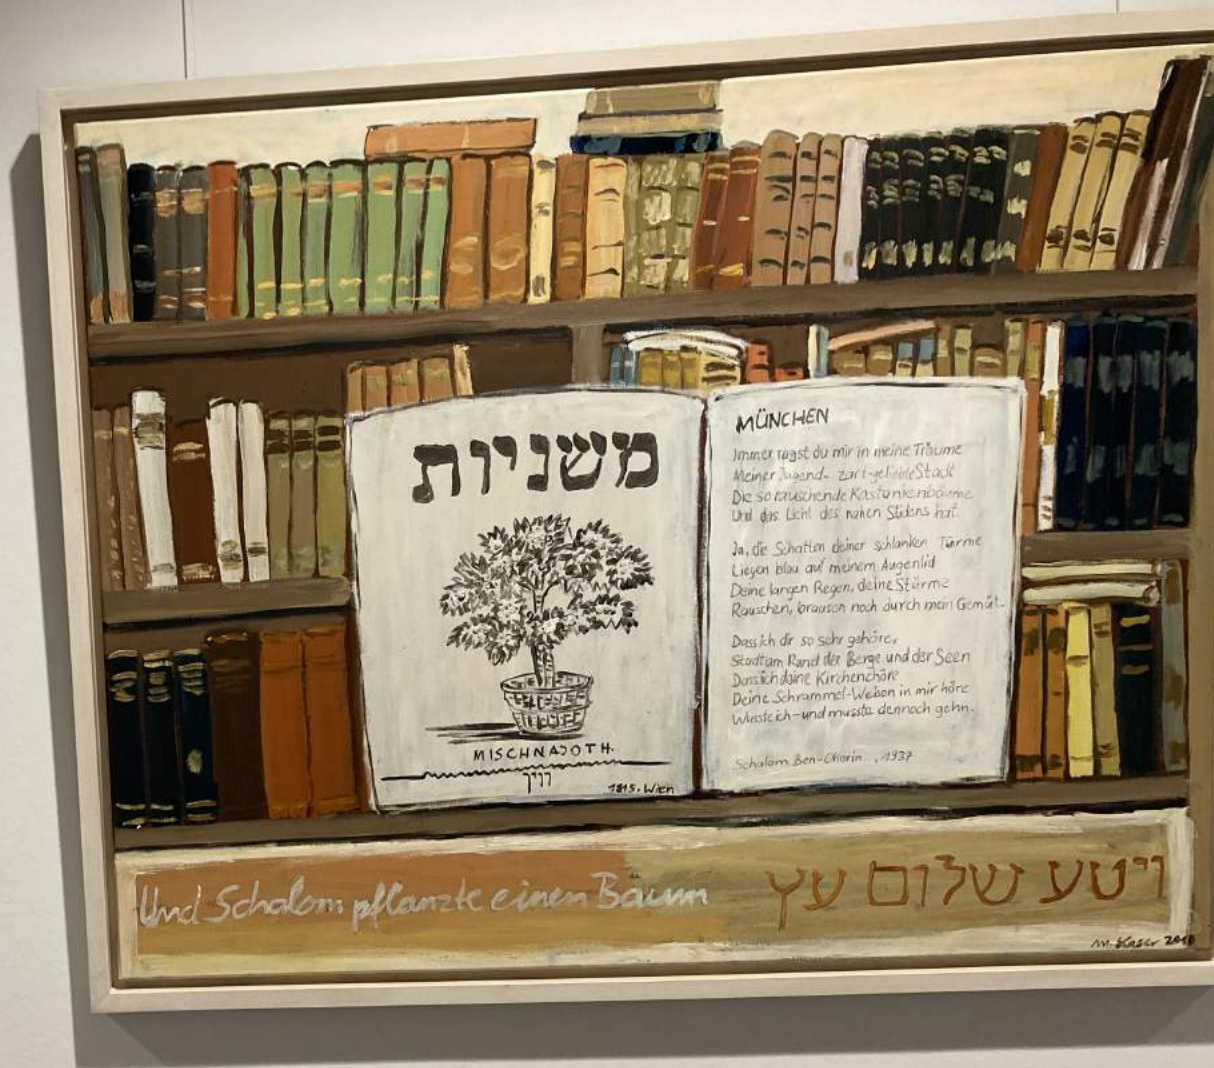 משניות
MISCHNAJOTH.
רוויך
1815, Wien
MÜNCHEN
Immer ragst du mir in meine Träume
Meiner Jugend- zart-geliebte Stadt
Die so rauschende Kastanienbäume
Und das Licht des nahen Südens hat.
Ja, die Schatten deiner schlanken Türme
Liegen blau auf meinem Augenlid
Deine langen Regen, deine Stürme
Rauschen, brausen noch durch mein Gemüt.
Dass ich dir so sehr gehöre,
Stadt am Rand der Berge und der Seen
Dass ich deine Kirchenchöre
Deine Schrammel-Weisen in mir höre
Wusste ich - und musste dennoch gehn.
Schalom Ben-Chorin, 1937
Und Schalom pflanzte einen Baum
ויטע שלום עץ
2010